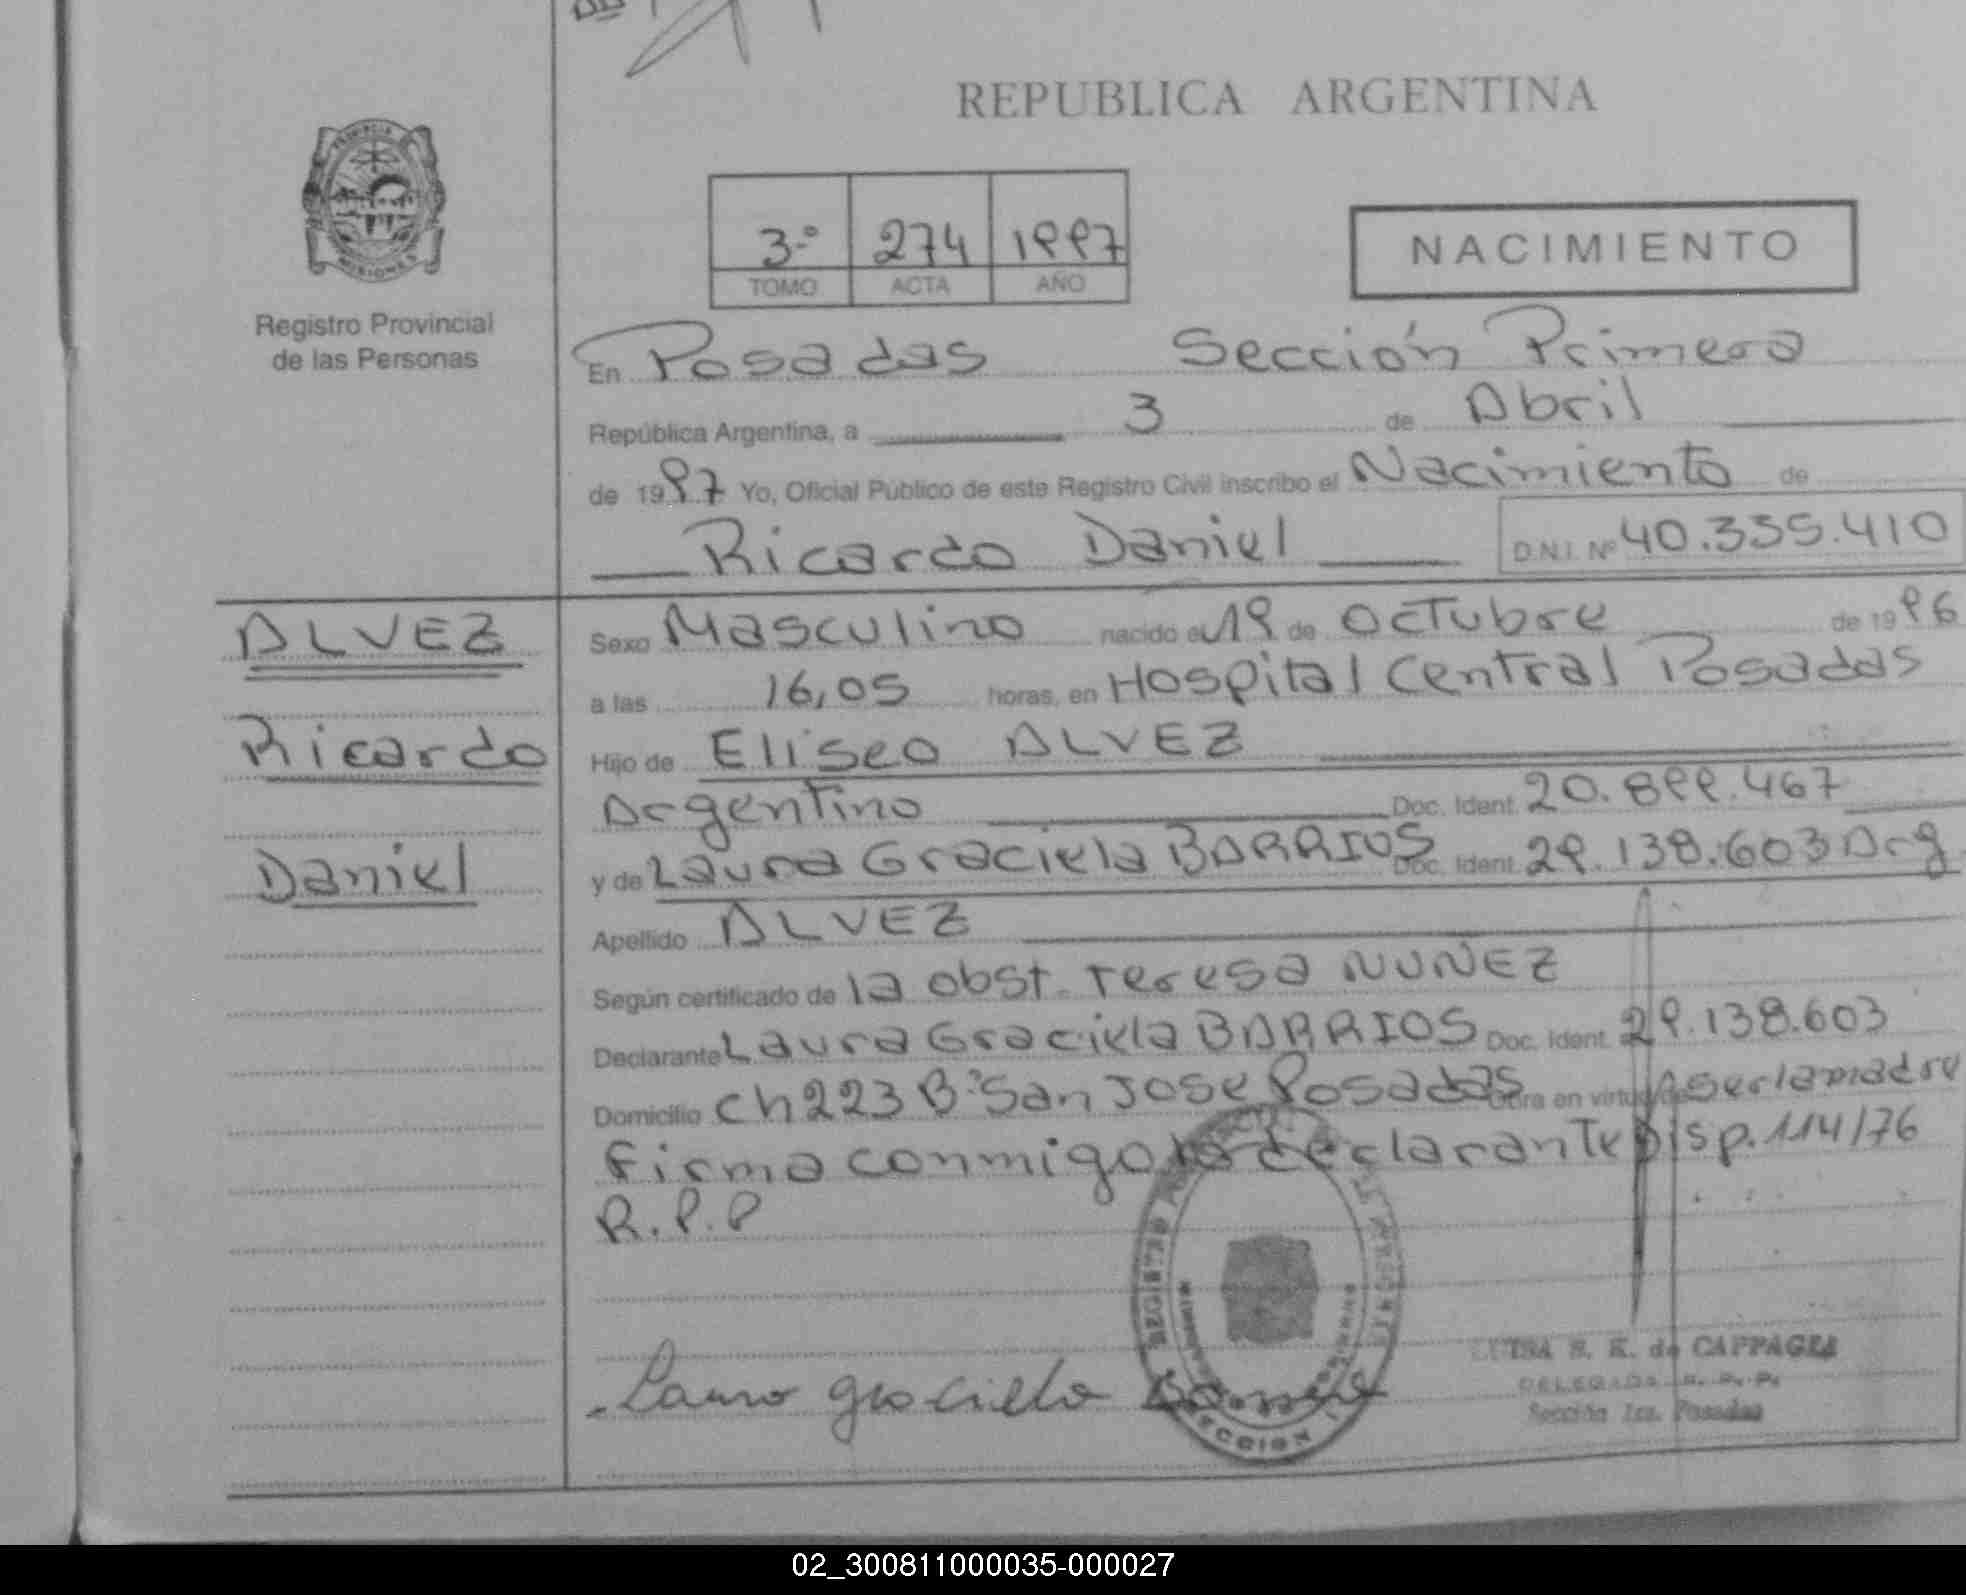 REPUBLICA ARGENTINA
PROVINCIA
MISIONES
Registro Provincial
de las Personas
3º 274 1997
TOMO ACTA AÑO
NACIMIENTO
En Posadas Sección Primera
República Argentina, a 3 de Abril
de 1997 Yo, Oficial Público de este Registro Civil inscribo el Nacimiento de
Ricardo Daniel D.N.I. Nº 40.335.410
ALVEZ
Ricardo
Daniel
Sexo Masculino nacido el 19 de Octubre de 1996
a las 16,05 horas, en Hospital Central Posadas
Hijo de Eliseo ALVEZ
Argentino Doc. Ident. 20.899.467
y de Laura Graciela BARRIOS Doc. Ident. 29.138.603 Arg
Apellido ALVEZ
Según certificado de la obst. Teresa NUÑEZ
Declarante Laura Graciela BARRIOS Doc. Ident. 29.138.603
Domicilio Ch 223 Bº San Jose Posadas Obra en virtud de ser la madre
Firma conmigo la declarante Disp. 114/76
R.P.P
Laura graciela Barrios
REGISTRO
SECCION 1
LUISA S. K. de CAPPAGLI
DELEGADA R. P. P.
Sección 1ra. Posadas
02_300811000035-000027